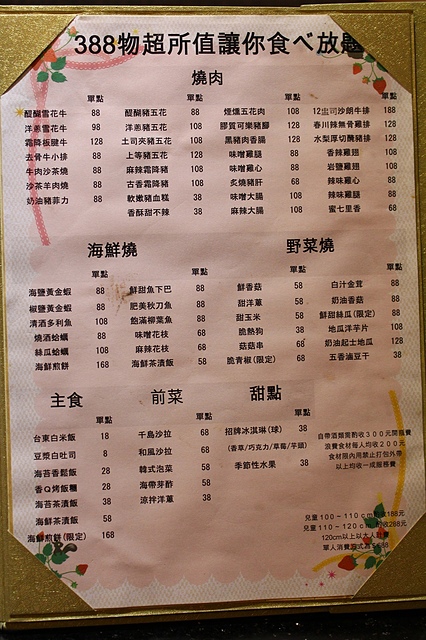 388物超所值讓你食べ放題
燒肉
單點 單點 單點 單點
醍醐雪花牛 88 醍醐豬五花 88 煙燻五花肉 108 12盎司沙朗牛排 188
洋蔥雪花牛 98 洋蔥豬五花 108 膠質可樂豬腳 128 春川辣無骨雞排 128
霜降板腱牛 128 土司夾豬五花 108 黑豬肉香腸 128 水梨厚切醃豬排 128
去骨牛小排 88 上等豬五花 128 味噌雞腿 88 香辣雞翅 108
牛肉沙茶燒 88 麻辣霜降豬 108 味噌雞心 88 岩鹽雞翅 108
沙茶羊肉燒 88 古香霜降豬 108 炙燒豬肝 68 辣味雞心 88
奶油豬菲力 88 軟嫩豬血糕 38 味噌大腸 108 辣味雞腿 88
香酥甜不辣 38 麻辣大腸 108 蜜七里香 68
海鮮燒 野菜燒
單點 單點 單點 單點
海鹽黃金蝦 88 鮮甜魚下巴 88 鮮香菇 58 白汁金茸 88
椒鹽黃金蝦 88 肥美秋刀魚 88 甜洋蔥 58 奶油香菇 88
清酒多利魚 108 飽滿柳葉魚 88 甜玉米 58 鮮甜絲瓜(限定) 88
燒酒蛤蠣 88 味噌花枝 68 脆熱狗 38 地瓜洋芋片 108
絲瓜蛤蠣 108 麻辣花枝 68 菇菇串 68 奶油起士地瓜 128
海鮮煎餅 168 海鮮茶漬飯 58 脆青椒(限定) 68 五香滷豆干 38
主食 前菜 甜點
單點 單點 單點
台東白米飯 18 千島沙拉 68 招牌冰淇琳(球) 38
豆漿白吐司 8 和風沙拉 68 (香草/巧克力/草莓/芋頭)
海苔香鬆飯 28 韓式泡菜 58 季節性水果 38
香Q烤飯糰 28 海帶芽酢 58
海苔茶漬飯 38 涼拌洋蔥 38
海鮮茶漬飯 58
海鮮煎餅(限定) 168
自帶酒類需酌收300元開瓶費
浪費食材每人均收200元
食材限內用禁止打包外帶
以上均收一成服務費
兒童100~110cm酌收188元
兒童110~120cm酌收288元
120cm以上以大人計費